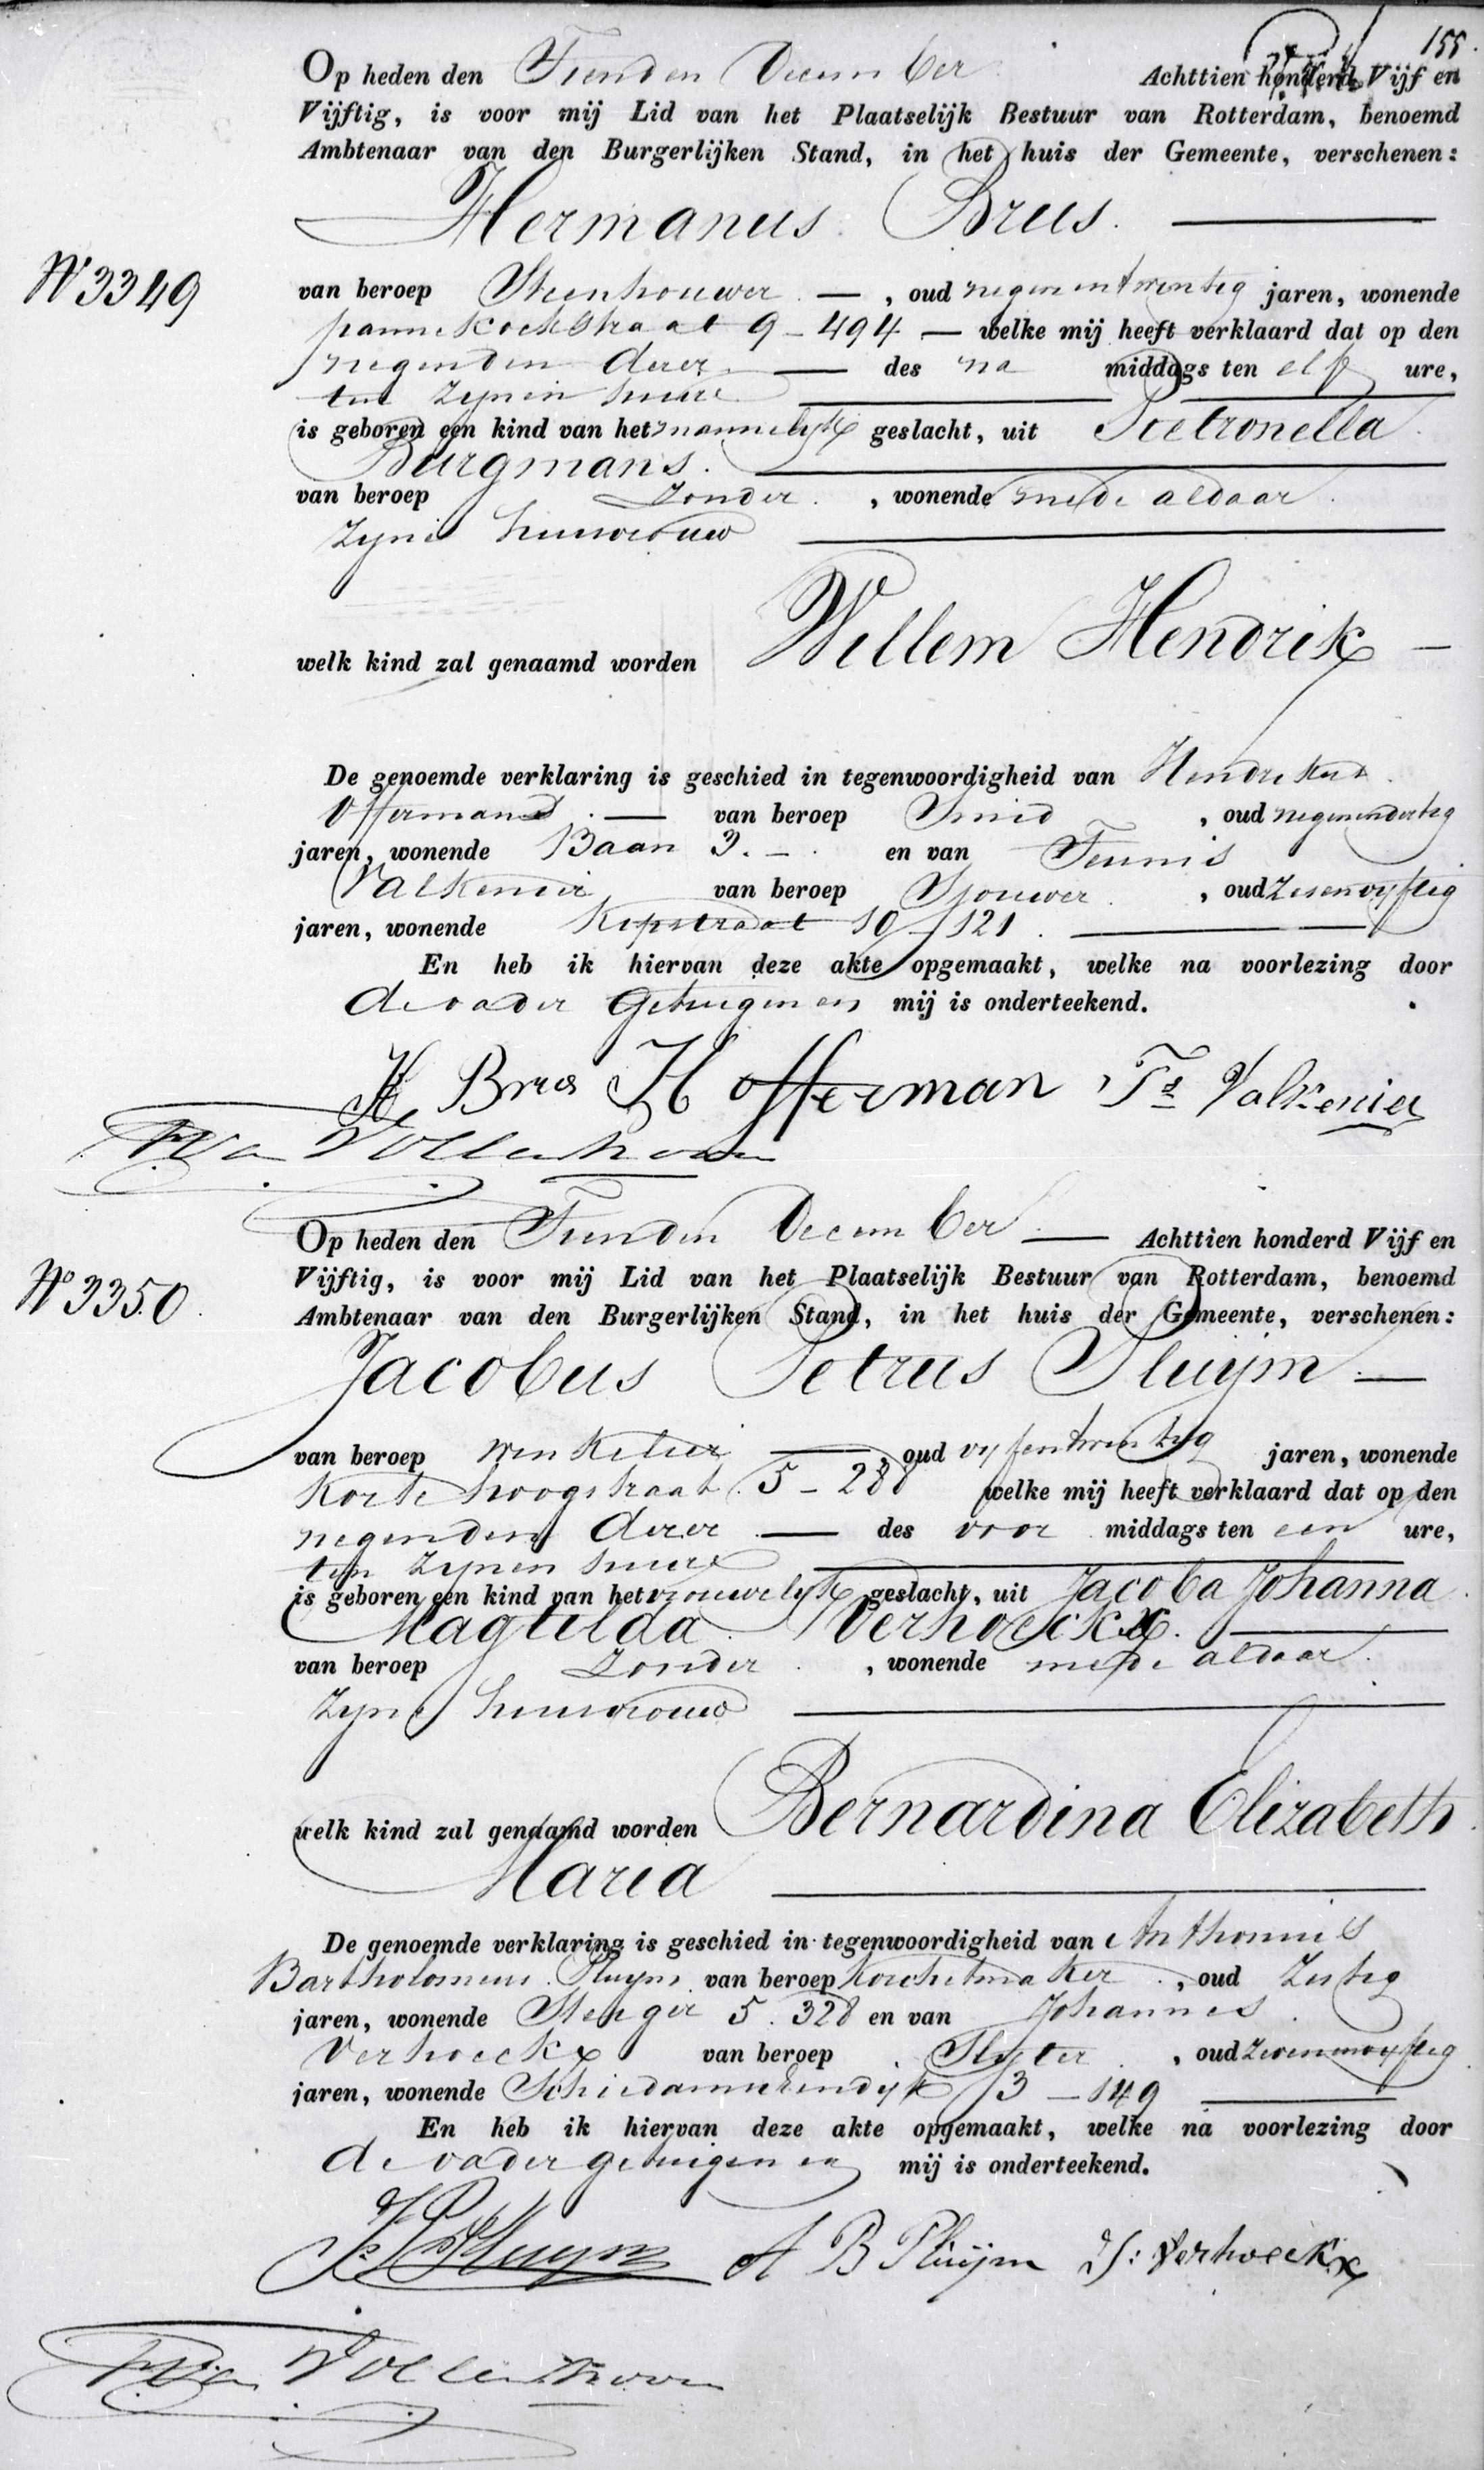 155.
Op heden den Tienden December Achttien honderd Vijf en
Vijftig, is voor mij Lid van het Plaatselijk Bestuur van Rotterdam, benoemd
Ambtenaar van den Burgerlijken Stand, in het huis der Gemeente, verschenen:
Hermanus Brus.
N° 3349
van beroep Steenhouwer — , oud negenentwintig jaren, wonende
pannekoekstraat 9 - 494 — welke mij heeft verklaard dat op den
negenden dezer — des na middags ten elf ure,
ten zijnen huize
is geboren een kind van het mannelijk geslacht, uit Pietronella
Burgmans.
van beroep Zonder , wonende mede aldaar.
zijne huisvrouw
welk kind zal genaamd worden Willem Hendrik —
De genoemde verklaring is geschied in tegenwoordigheid van Hendrikus
Offermans — van beroep Smid , oud negenendertig
jaren, wonende Baan 3. — en van Teunis
Valkenier van beroep Sjouwer , oud zesenvijftig
jaren, wonende Kipstraat 10 - 121.
En heb ik hiervan deze akte opgemaakt, welke na voorlezing door
de vader getuigen en mij is onderteekend.
H Brus H offerman Ts Valkenier
Van Vollenhoven
Op heden den Tienden December — Achttien honderd Vijf en
N° 3350.
Vijftig, is voor mij Lid van het Plaatselijk Bestuur van Rotterdam, benoemd
Ambtenaar van den Burgerlijken Stand, in het huis der Gemeente, verschenen:
Jacobus Petrus Pluijm —
van beroep winkelier — oud vijfentwintig jaren, wonende
Korte hoogstraat 5 - 288 welke mij heeft verklaard dat op den
negenden dezer — des voor middags ten een ure,
ten zijnen huize
is geboren een kind van het vrouwelijk geslacht, uit Jacoba Johanna
Magtilda Verhoeckx.
van beroep Zonder , wonende mede aldaar.
zijne huisvrouw
welk kind zal genaamd worden Bernardina Elizabeth
Maria
De genoemde verklaring is geschied in tegenwoordigheid van Anthonnis
Bartholomeus Pluijm van beroep korchetmaker , oud Zestig
jaren, wonende Steiger 5. 328 en van Johannes
Verhoeckx van beroep Slijter , oud zevenenvijftig
jaren, wonende Schiedamschendijk 13 - 149
En heb ik hiervan deze akte opgemaakt, welke na voorlezing door
de vader getuigen en mij is onderteekend.
J P Pluijm A B Pluijm J: Verhoeckx
Van Vollenhoven